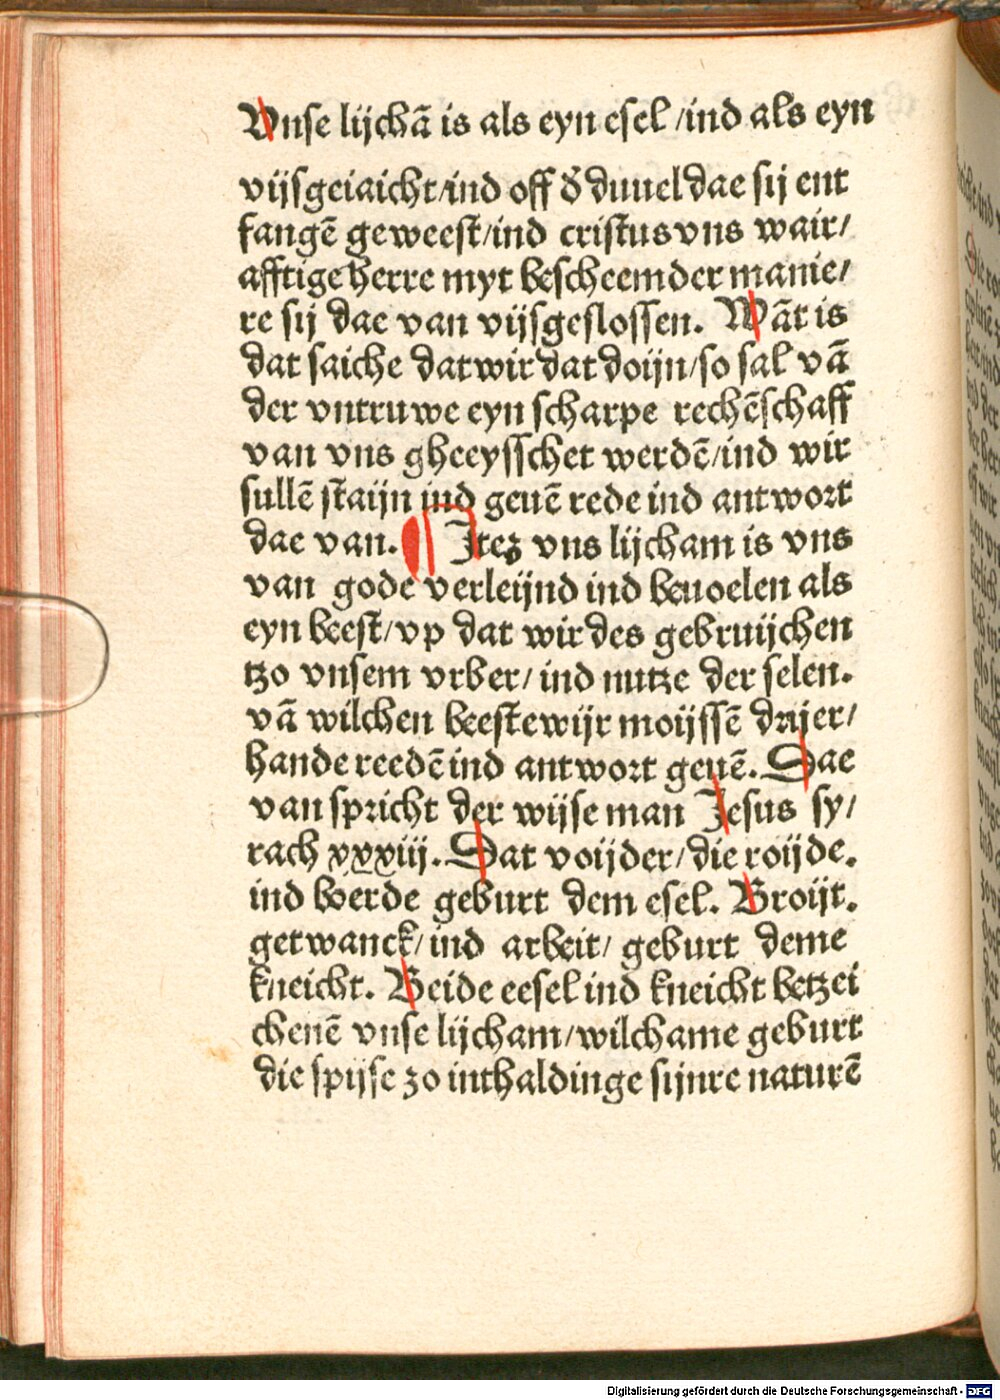 Vnse lijchā is als eyn esel /ind als eyn
vijsgeiaicht/ind off d̕ duuel dae sij ent
fangē geweest/ind cristus vns wair/
afftige herre myt bescheemder manie/
re sij dae van vijsgeslossen. Wāt is
dat saiche dat wir dat doijn/so sal vā
der vntruwe eyn scharpe rechēschaff
van vns gheeysschet werdē/ind wir
sullē staijn ind geuē rede ind antwort
dae van. ¶ Iteꝫ vns lijcham is vns
van gode verleijnd ind beuoelen als
eyn beest/vp dat wir des gebruijchen
tzo vnsem vrber/ind nutze der selen.
vā wilchen beeste wijr moijssē drijer/
hande reedē ind antwort geuē. Dae
van spricht der wijse man Jesus sy/
rach xxxiij. Dat voijder/die roijde.
ind boerde geburt dem esel. Broijt.
getwanck/ind arbeit/ geburt deme
kneicht. Beide eesel ind kneicht betzei
chenē vnse lijcham/wilchame geburt
die spijse zo inthaldinge sijnre naturē
Digitalisierung gefördert durch die Deutsche Forschungsgemeinschaft - DFG